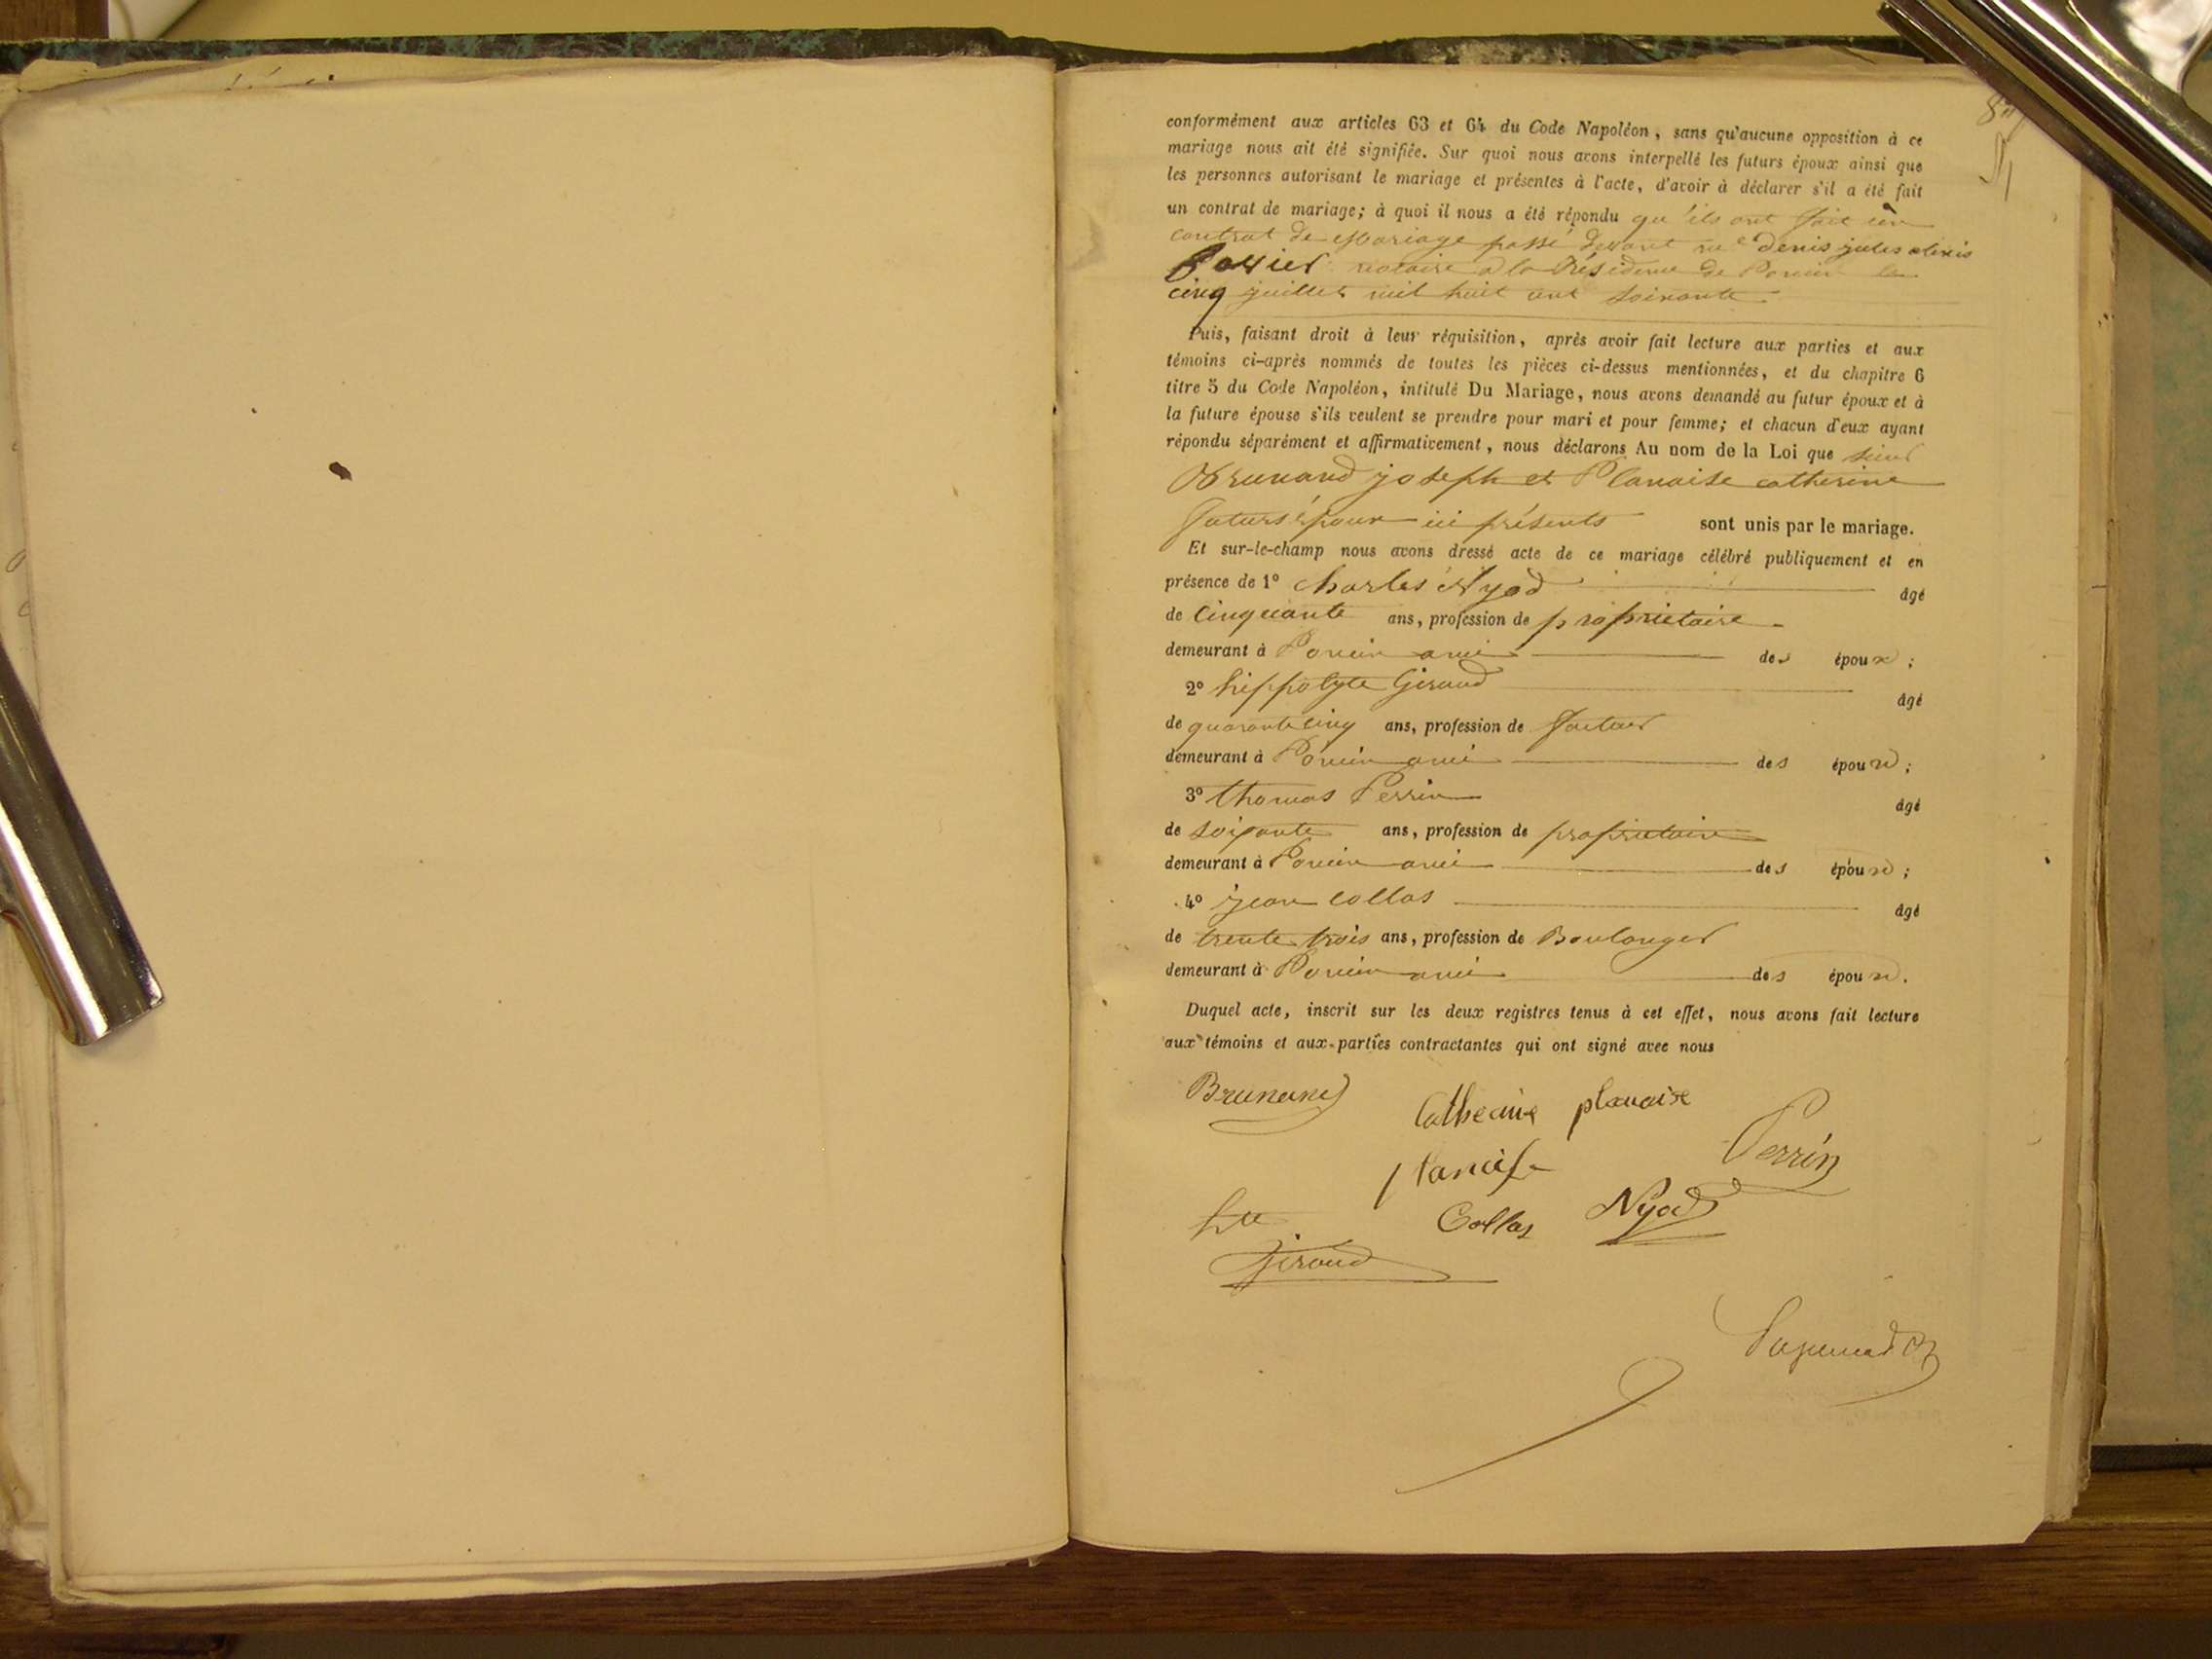 conformément aux articles 63 et 64 du Code Napoléon, sans qu'aucune opposition à ce
mariage nous ait été signifiée. Sur quoi nous avons interpellé les futurs époux ainsi que
les personnes autorisant le mariage et présentes à l'acte, d'avoir à déclarer s'il a été fait
un contrat de mariage; à quoi il nous a été répondu qu'ils ont fait un
contrat de Mariage passé devant me denis jules alexis
notaire a la Résidence de Poncin le
cinq juillet mil huit cent soixante.
Puis, faisant droit à leur réquisition, après avoir fait lecture aux parties et aux
témoins ci-après nommés de toutes les pièces ci-dessus mentionnées, et du chapitre 6
titre 5 du Code Napoléon, intitulé Du Mariage, nous avons demandé au futur époux et à
la future épouse s'ils veulent se prendre pour mari et pour femme; et chacun d'eux ayant
répondu séparément et affirmativement, nous déclarons Au nom de la Loi que sieur
Brunand joseph et Planaise catherine
futurs époux ici présents sont unis par le mariage.
Et sur-le-champ nous avons dressé acte de ce mariage célébré publiquement et en
présence de 1° Charles Nyod âgé
de Cinquante ans, profession de propriétaire
demeurant à Poncin ami des époux;
2° hippolyte Giraud âgé
de quarante cinq ans, profession de facteur
demeurant à Poncin ami des époux;
3° thomas Perrin âgé
de soixante ans, profession de propriétaire
demeurant à Poncin ami des époux;
4° jean Collas âgé
de trente trois ans, profession de Boulanger
demeurant à Poncin ami des époux.
Duquel acte, inscrit sur les deux registres tenus à cet effet, nous avons fait lecture
aux témoins et aux parties contractantes qui ont signé avec nous
Brunand
Catherine planaise
planaise
Perrin
hte
Collas
Nyod
Giraud